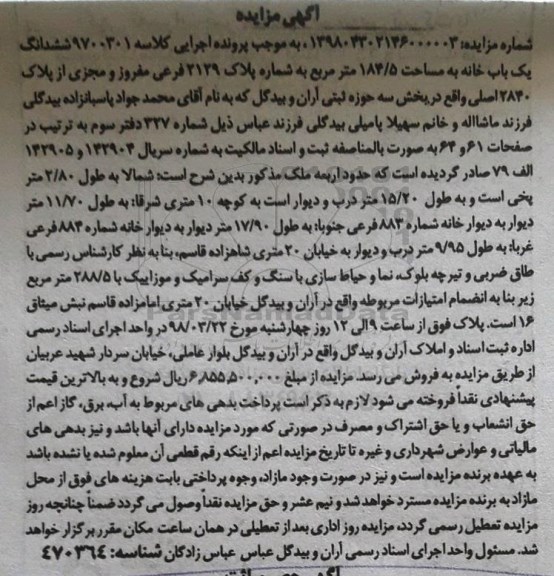 آگهی مزایده
شماره مزایده: ۱۳۹۸۰۴۳۰۲۱۴۶۰۰۰۰۰۳، به موجب پرونده اجرایی کلاسه ۹۷۰۰۳۰۱ ششدانگ
یک باب خانه به مساحت ۱۸۴/۵ متر مربع به شماره پلاک ۲۱۲۹ فرعی مفروز و مجزی از پلاک
۲۸۴۰ اصلی واقع در بخش سه حوزه ثبتی آران و بیدگل که به نام آقای محمد جواد پاسبانزاده بیدگلی
فرزند ماشااله و خانم سهیلا پامیلی بیدگلی فرزند عباس ذیل شماره ۳۲۷ دفتر سوم به ترتیب در
صفحات ۶۱ و ۶۴ به صورت بالمناصفه ثبت و اسناد مالکیت به شماره سریال ۱۴۲۹۰۴ و ۱۴۲۹۰۵
الف ۷۹ صادر گردیده است که حدود اربعه ملک مذکور بدین شرح است: شمالا به طول ۲/۸۰ متر
پخی است و به طول ۱۵/۲۰ متر درب و دیوار است به کوچه ۱۰ متری شرقا: به طول ۱۱/۷۰ متر
دیوار به دیوار خانه شماره ۸۸۳ فرعی جنوبا: به طول ۱۷/۹۰ متر دیوار به دیوار خانه شماره ۸۸۴ فرعی
غربا: به طول ۹/۹۵ متر درب و دیوار به خیابان ۲۰ متری شاهزاده قاسم، بنا به نظر کارشناس رسمی با
طاق ضربی و تیرچه بلوک، نما و حیاط سازی با سنگ و کف سرامیک و موزاییک با ۲۸۸/۵ متر مربع
زیر بنا به انضمام امتیازات مربوطه واقع در آران و بیدگل خیابان ۲۰ متری امامزاده قاسم نبش میثاق
۱۶ است. پلاک فوق از ساعت ۹ الی ۱۲ روز چهارشنبه مورخ ۹۸/۰۳/۲۲ در واحد اجرای اسناد رسمی
اداره ثبت اسناد و املاک آران و بیدگل واقع در آران و بیدگل بلوار عاملی، خیابان سردار شهید عربیان
از طریق مزایده به فروش می رسد. مزایده از مبلغ ۶,۸۵۵,۵۰۰,۰۰۰ ریال شروع و به بالاترین قیمت
پیشنهادی نقداً فروخته می شود لازم به ذکر است پرداخت بدهی های مربوط به آب، برق، گاز اعم از
حق انشعاب و یا حق اشتراک و مصرف در صورتی که مورد مزایده دارای آنها باشد و نیز بدهی های
مالیاتی و عوارض شهرداری و غیره تا تاریخ مزایده اعم از اینکه رقم قطعی آن معلوم شده یا نشده باشد
به عهده برنده مزایده است و نیز در صورت وجود مازاد، وجوه پرداختی بابت هزینه های فوق از محل
مازاد به برنده مزایده مسترد خواهد شد و نیم عشر و حق مزایده نقداً وصول می گردد ضمناً چنانچه روز
مزایده تعطیل رسمی گردد، مزایده روز اداری بعد از تعطیلی در همان ساعت مکان مقرر برگزار خواهد
شد. مسئول واحد اجرای اسناد رسمی آران و بیدگل عباس عباس زادگان شناسه: ۴۷۰۳۶۴
ParsNamadData